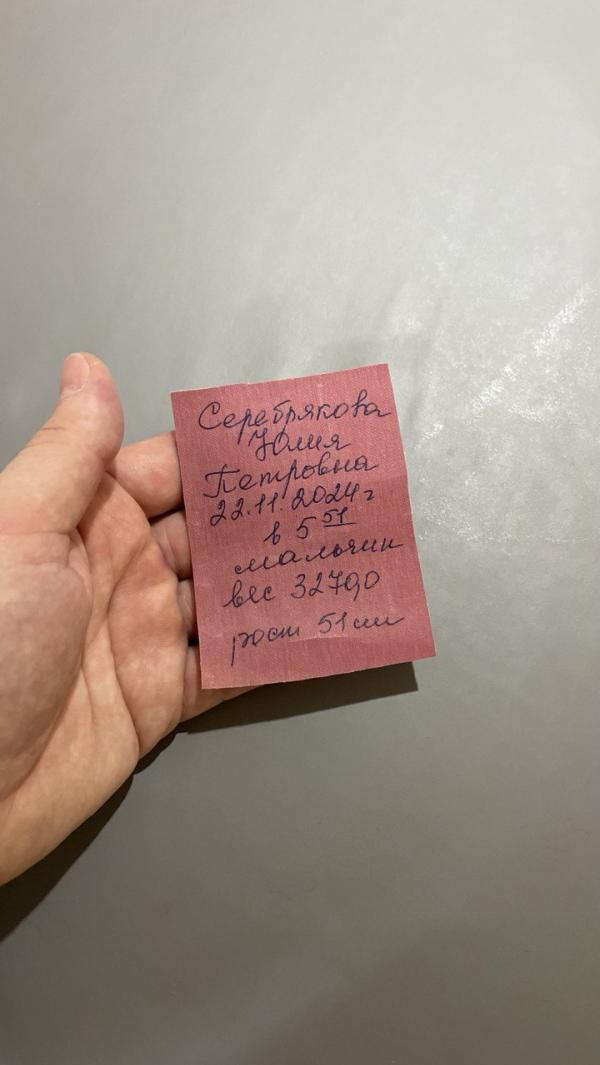 Серебрякова
Юлия
Петровна
22.11.2024г
в 5 51
мальчик
вес 3270,0
рост 51 см